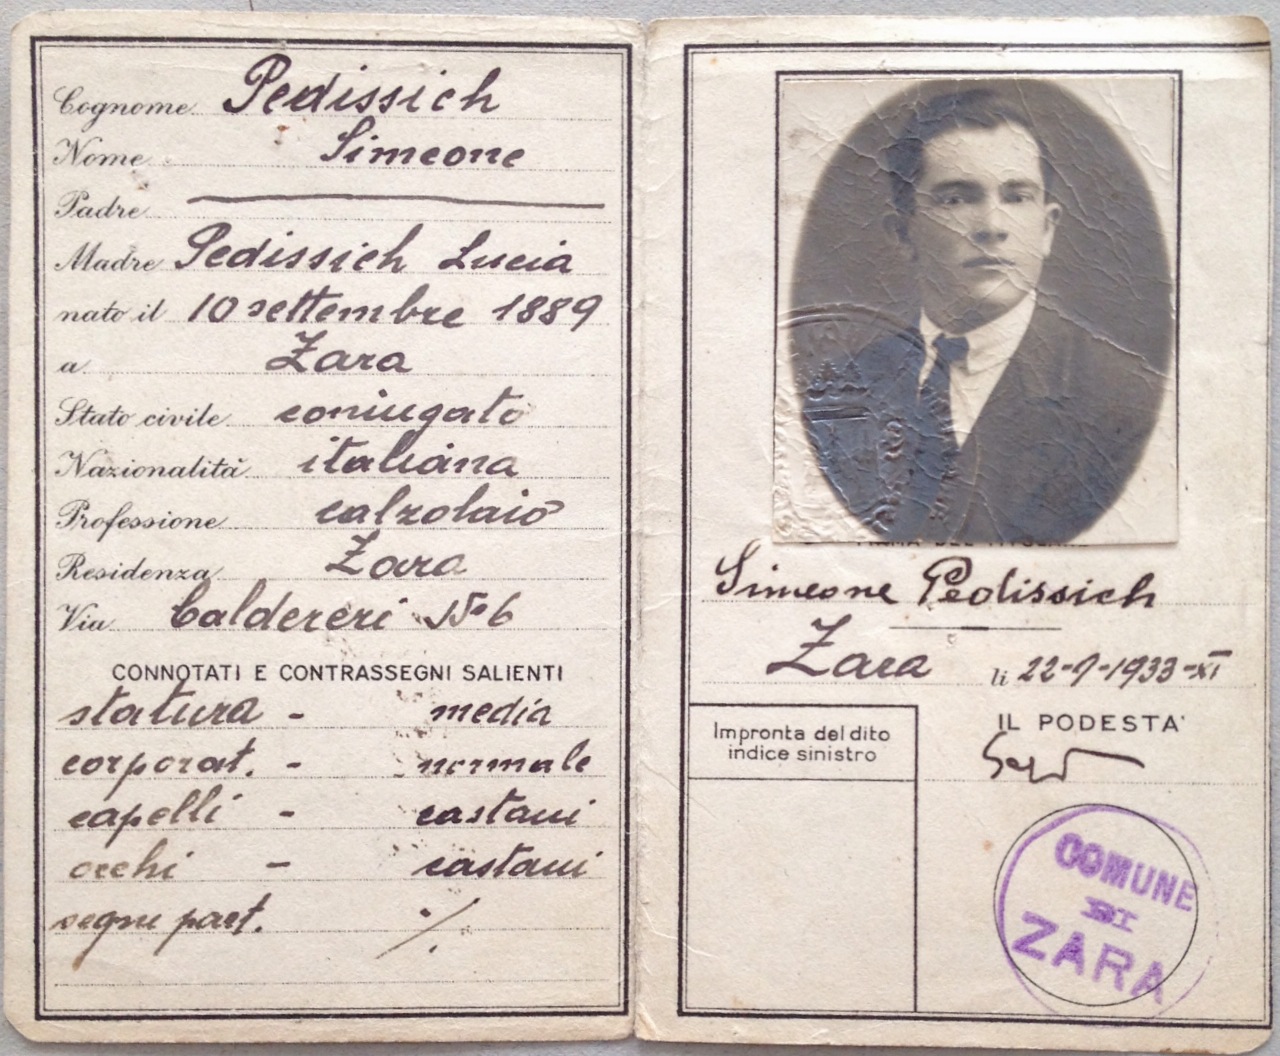 Cognome Pedissich
Nome Simeone
Padre
Madre Pedissich Lucia
nato il 10 settembre 1889
a Zara
Stato civile coniugato
Nazionalità italiana
Professione calzolaio
Residenza Zara
Via Caldereri No 6
CONNOTATI E CONTRASSEGNI SALIENTI
statura - media
corporat. - normale
capelli - castani
occhi - castani
segni part. ./.
FIRMA DEL TITOLARE
Simeone Pedissich
Zara li 22-9-1933-XI
IL PODESTA'
Impronta del dito
indice sinistro
COMUNE
DI
ZARA